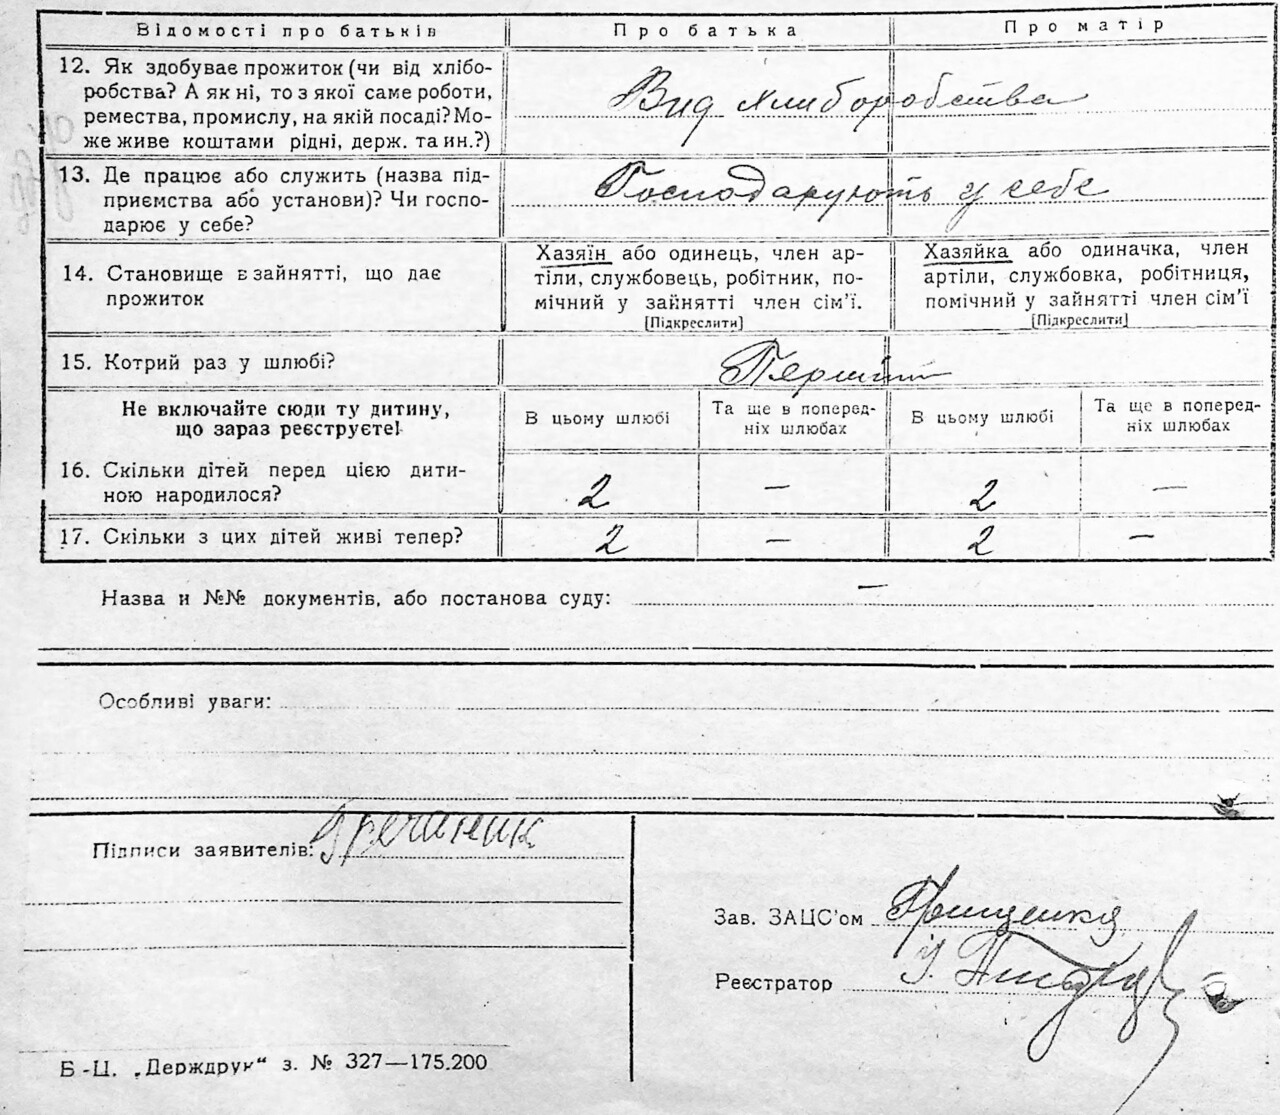 Відомості про батьків Про батька Про матір
12. Як здобуває прожиток (чи від хлібо-
робства? А як ні, то з якої саме роботи,
ремества, промислу, на якій посаді? Мо-
же живе коштами рідні, держ. та ин.?)
Вид хлиборобства
13. Де працює або служить (назва під-
приємства або установи)? Чи госпо-
дарює у себе?
Господарують у себе
14. Становище в зайнятті, що дає
прожиток
Хазяїн або одинець, член ар-
тіли, службовець, робітник, по-
мічний у зайнятті член сім’ї.
[Підкреслити]
Хазяйка або одиначка, член
артіли, службовка, робітниця,
помічний у зайнятті член сім’ї
[Підкреслити]
15. Котрий раз у шлюбі?
Не включайте сюди ту дитину,
що зараз реєструєте!
В цьому шлюбі
Та ще в поперед-
ніх шлюбах
В цьому шлюбі
Та ще в поперед-
ніх шлюбах
16. Скільки дітей перед цією дити-
ною народилося?
2 — 2 —
17. Скільки з цих дітей живі тепер? 2 — 2 —
Назва и №№ документів, або постанова суду: —
Особливі уваги:
Підписи заявителів: Гречаник
Зав. ЗАЦС’ом
Реєстратор
Б-Ц. „Держдрук“ з. № 327—175.200